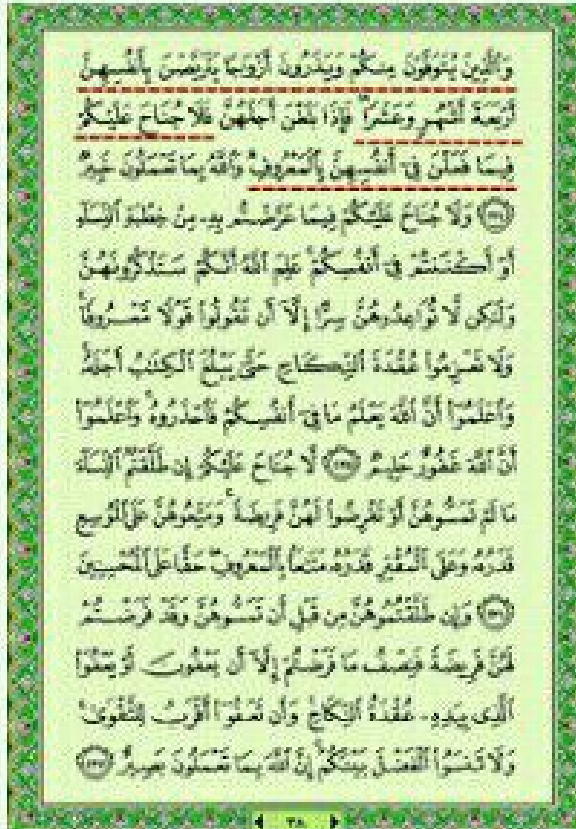 وَالَّذِينَ يُتَوَفَّوْنَ مِنكُمْ وَيَذَرُونَ أَزْوَاجًا يَتَرَبَّصْنَ بِأَنفُسِهِنَّ
أَرْبَعَةَ أَشْهُرٍ وَعَشْرًا ۖ فَإِذَا بَلَغْنَ أَجَلَهُنَّ فَلَا جُنَاحَ عَلَيْكُمْ
فِيمَا فَعَلْنَ فِي أَنفُسِهِنَّ بِالْمَعْرُوفِ ۗ وَاللَّهُ بِمَا تَعْمَلُونَ خَبِيرٌ
﴿٢٣٤﴾ وَلَا جُنَاحَ عَلَيْكُمْ فِيمَا عَرَّضْتُم بِهِ مِنْ خِطْبَةِ النِّسَاءِ
أَوْ أَكْنَنتُمْ فِي أَنفُسِكُمْ ۚ عَلِمَ اللَّهُ أَنَّكُمْ سَتَذْكُرُونَهُنَّ
وَلَٰكِن لَّا تُوَاعِدُوهُنَّ سِرًّا إِلَّا أَن تَقُولُوا قَوْلًا مَّعْرُوفًا ۚ
وَلَا تَعْزِمُوا عُقْدَةَ النِّكَاحِ حَتَّىٰ يَبْلُغَ الْكِتَابُ أَجَلَهُ ۚ
وَاعْلَمُوا أَنَّ اللَّهَ يَعْلَمُ مَا فِي أَنفُسِكُمْ فَاحْذَرُوهُ ۚ وَاعْلَمُوا
أَنَّ اللَّهَ غَفُورٌ حَلِيمٌ ﴿٢٣٥﴾ لَّا جُنَاحَ عَلَيْكُمْ إِن طَلَّقْتُمُ النِّسَاءَ
مَا لَمْ تَمَسُّوهُنَّ أَوْ تَفْرِضُوا لَهُنَّ فَرِيضَةً ۚ وَمَتِّعُوهُنَّ عَلَى الْمُوسِعِ
قَدَرُهُ وَعَلَى الْمُقْتِرِ قَدَرُهُ مَتَاعًا بِالْمَعْرُوفِ ۖ حَقًّا عَلَى الْمُحْسِنِينَ
﴿٢٣٦﴾ وَإِن طَلَّقْتُمُوهُنَّ مِن قَبْلِ أَن تَمَسُّوهُنَّ وَقَدْ فَرَضْتُمْ
لَهُنَّ فَرِيضَةً فَنِصْفُ مَا فَرَضْتُمْ إِلَّا أَن يَعْفُونَ أَوْ يَعْفُوَا
الَّذِي بِيَدِهِ عُقْدَةُ النِّكَاحِ ۚ وَأَن تَعْفُوا أَقْرَبُ لِلتَّقْوَىٰ ۚ
وَلَا تَنسَوُا الْفَضْلَ بَيْنَكُمْ ۚ إِنَّ اللَّهَ بِمَا تَعْمَلُونَ بَصِيرٌ ﴿٢٣٧﴾
٣٨